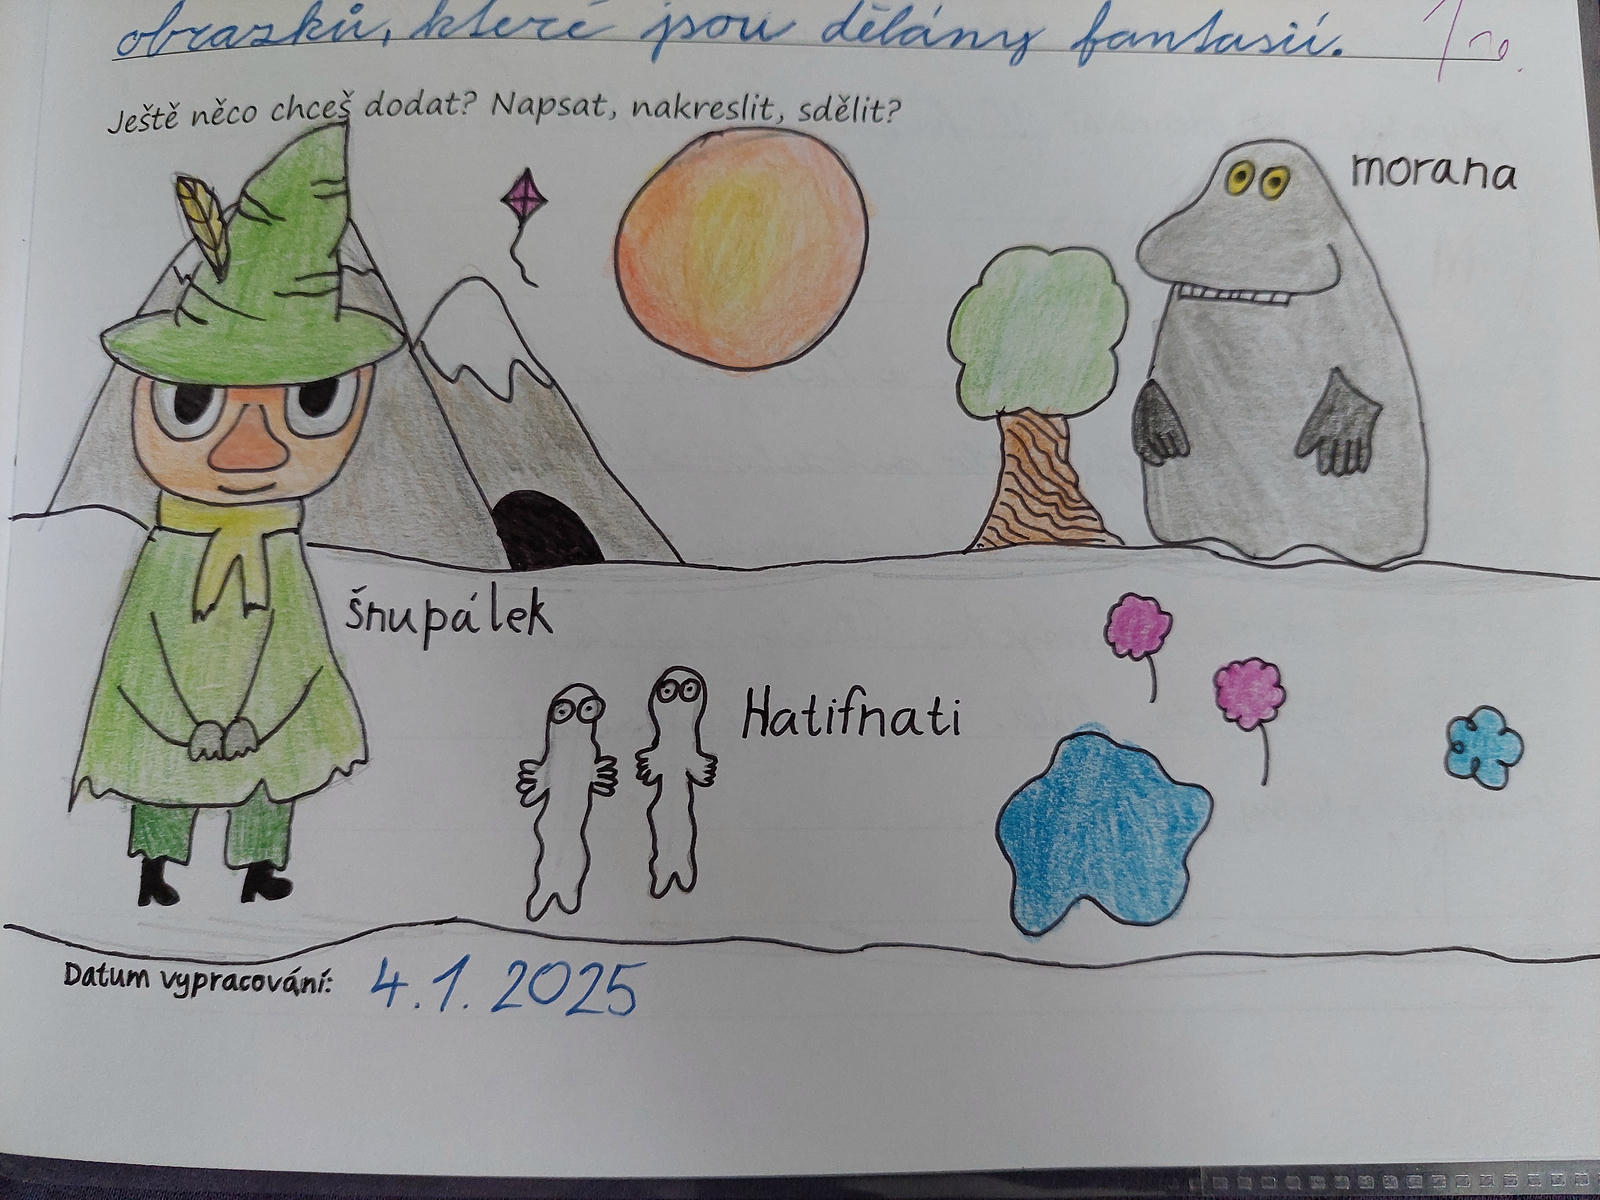 obrazků, které jsou dělány fantasií.
Ještě něco chceš dodat? Napsat, nakreslit, sdělit?
morana
šnupálek
Hatifnati
Datum vypracování: 4.1.2025